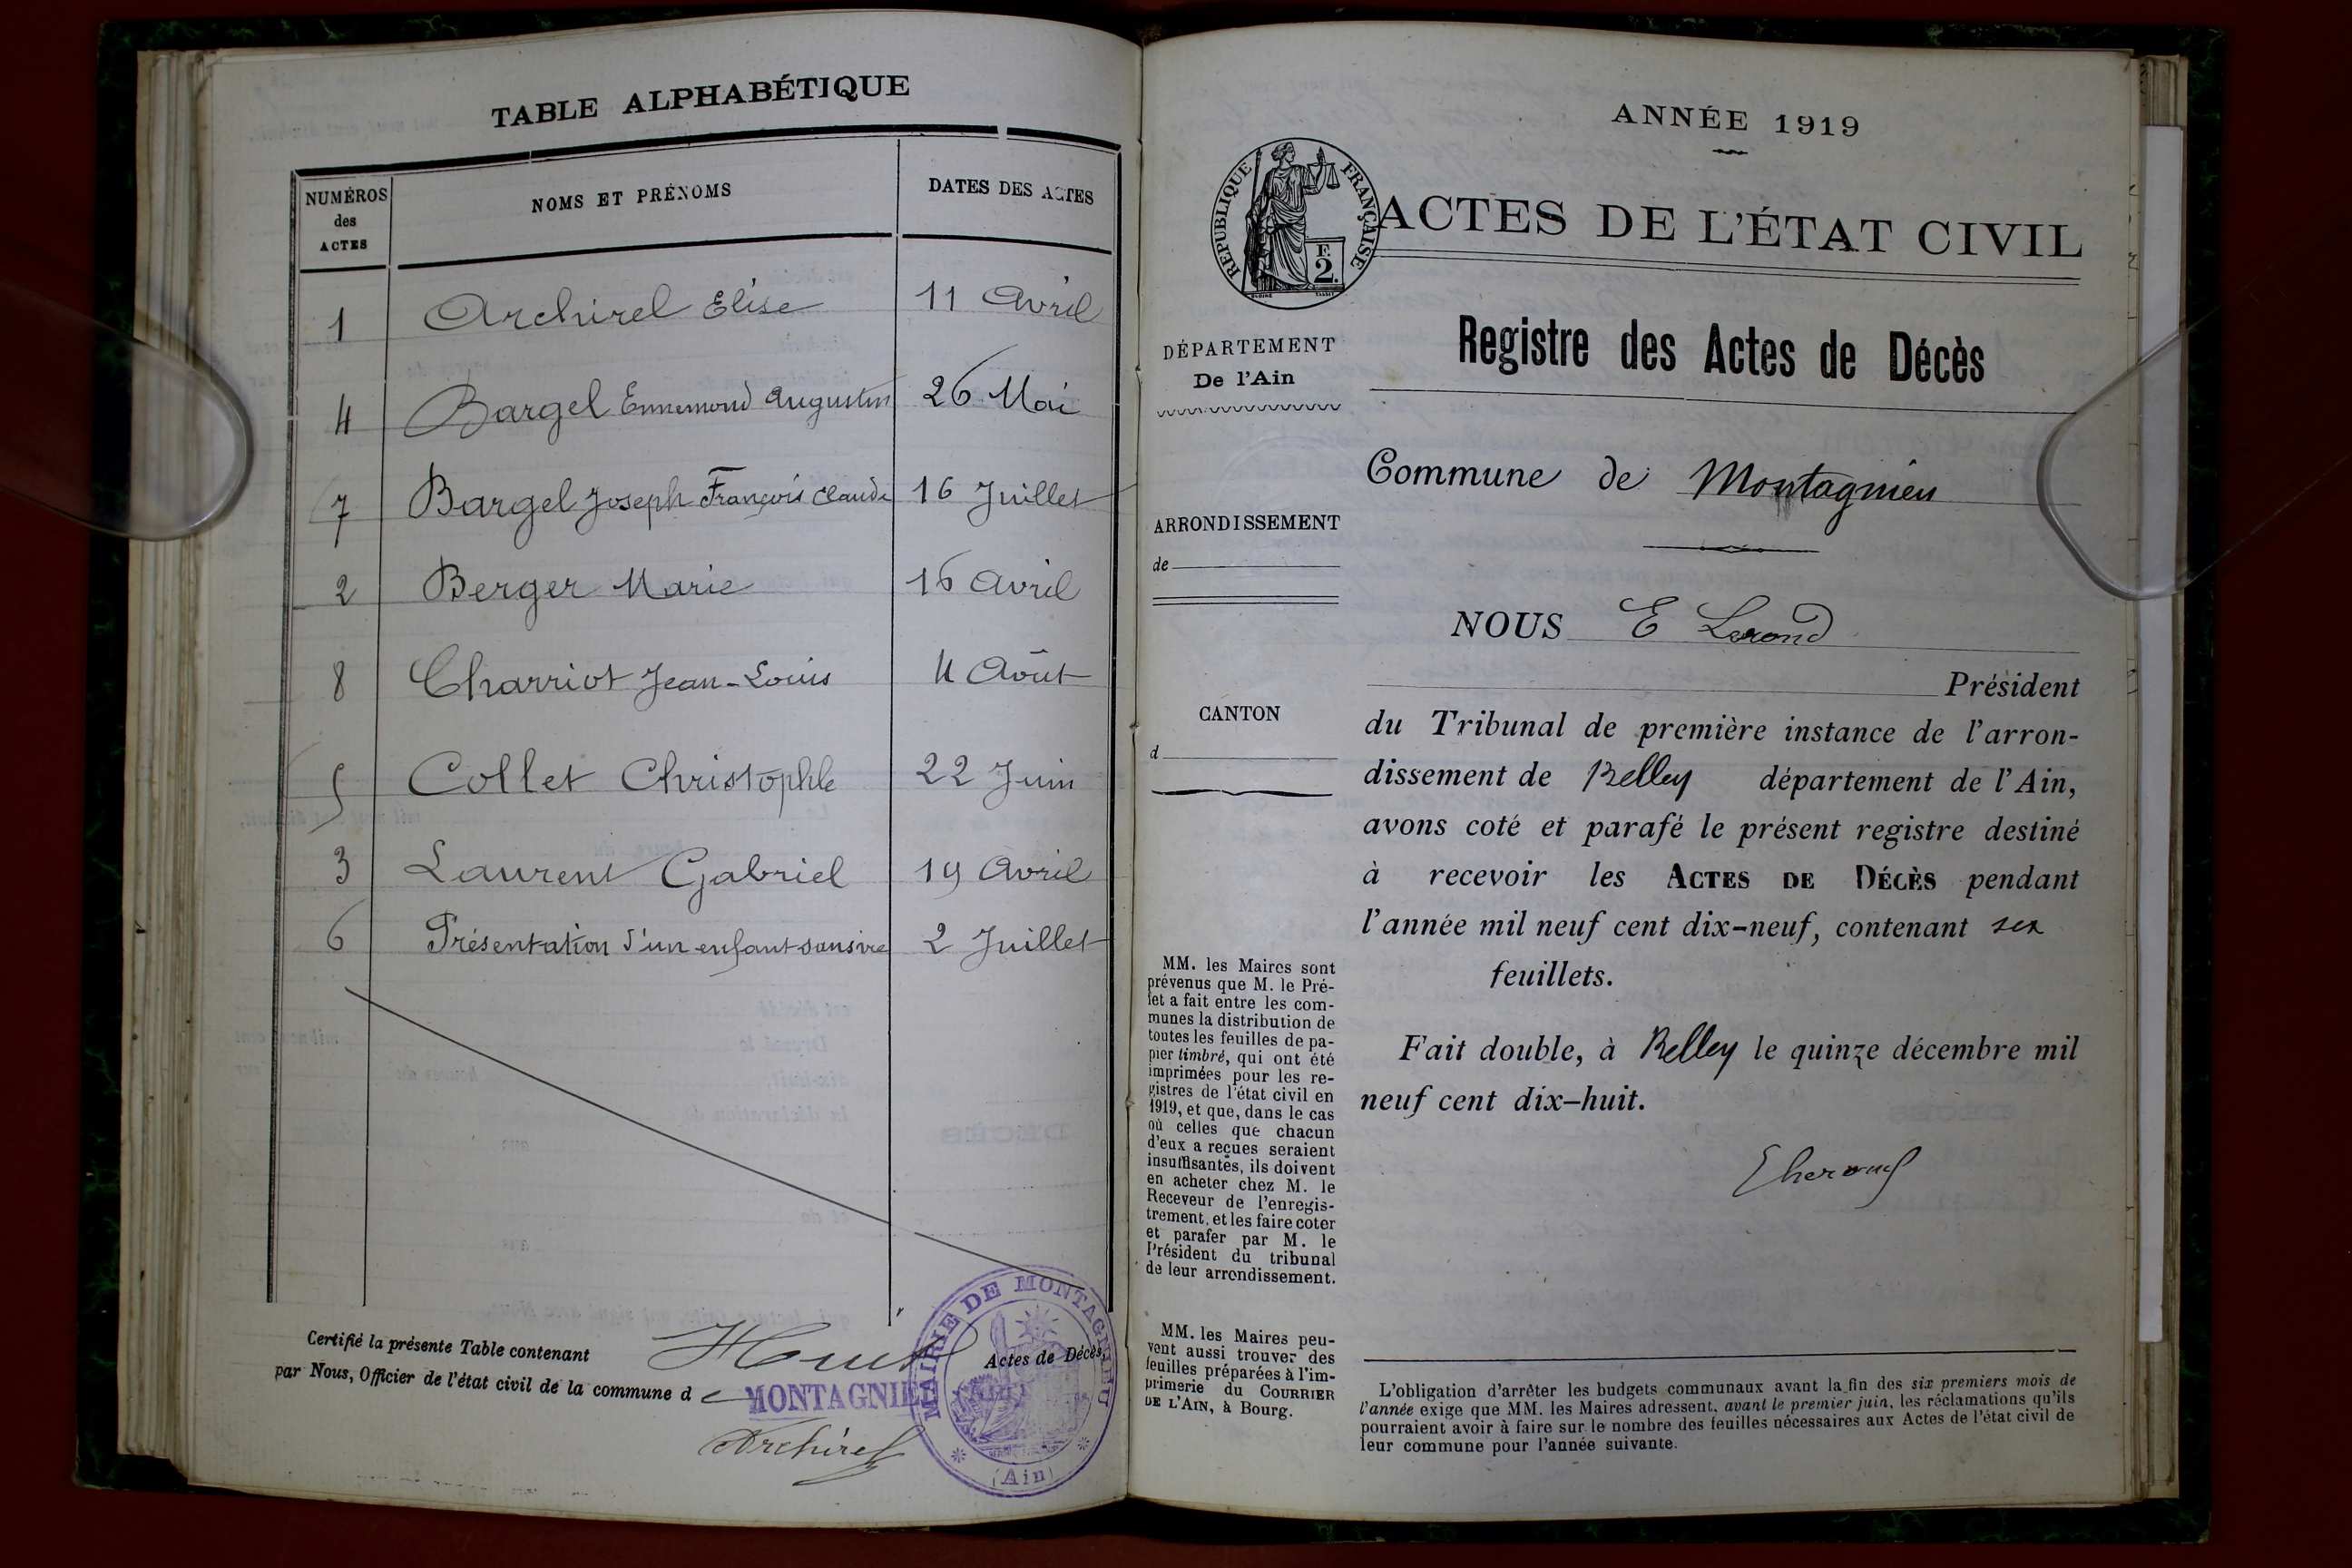 TABLE ALPHABÉTIQUE
NUMÉROS
des
ACTES
NOMS ET PRÉNOMS
DATES DES ACTES
1 Archirel Elise 11 Avril
4 Bargel Ennemond Augustin 26 Mai
7 Bargel Joseph François Claude 16 Juillet
2 Berger Marie 16 Avril
8 Charriot Jean-Louis 4 Août
5 Collet Christophle 22 Juin
3 Laurent Gabriel 19 Avril
6 Présentation d'un enfant sans vie 2 Juillet
Certifié la présente Table contenant Huit Actes de Décès,
par Nous, Officier de l'état civil de la commune d e MONTAGNIEU
Archirel
MAIRIE DE MONTAGNIEU
(Ain)
ANNÉE 1919
RÉPUBLIQUE FRANÇAISE
F.
2.
ACTES DE L'ÉTAT CIVIL
DÉPARTEMENT
De l'Ain
ARRONDISSEMENT
de
CANTON
d
MM. les Maires sont
prévenus que M. le Pré-
fet a fait entre les com-
munes la distribution de
toutes les feuilles de pa-
pier timbré, qui ont été
imprimées pour les re-
gistres de l'état civil en
1919, et que, dans le cas
où celles que chacun
d'eux a reçues seraient
insuffisantes, ils doivent
en acheter chez M. le
Receveur de l'enregis-
trement, et les faire coter
et parafer par M. le
Président du tribunal
de leur arrondissement.
MM. les Maires peu-
vent aussi trouver des
feuilles préparées à l'im-
primerie du COURRIER
DE L'AIN, à Bourg.
Registre des Actes de Décès
Commune de Montagnieu
NOUS E
Président
du Tribunal de première instance de l'arron-
dissement de Belley département de l'Ain,
avons coté et parafé le présent registre destiné
à recevoir les ACTES DE DÉCÈS pendant
l'année mil neuf cent dix-neuf, contenant six
feuillets.
Fait double, à Belley le quinze décembre mil
neuf cent dix-huit.
L'obligation d'arrêter les budgets communaux avant la fin des six premiers mois de
l'année exige que MM. les Maires adressent, avant le premier juin, les réclamations qu'ils
pourraient avoir à faire sur le nombre des feuilles nécessaires aux Actes de l'état civil de
leur commune pour l'année suivante.